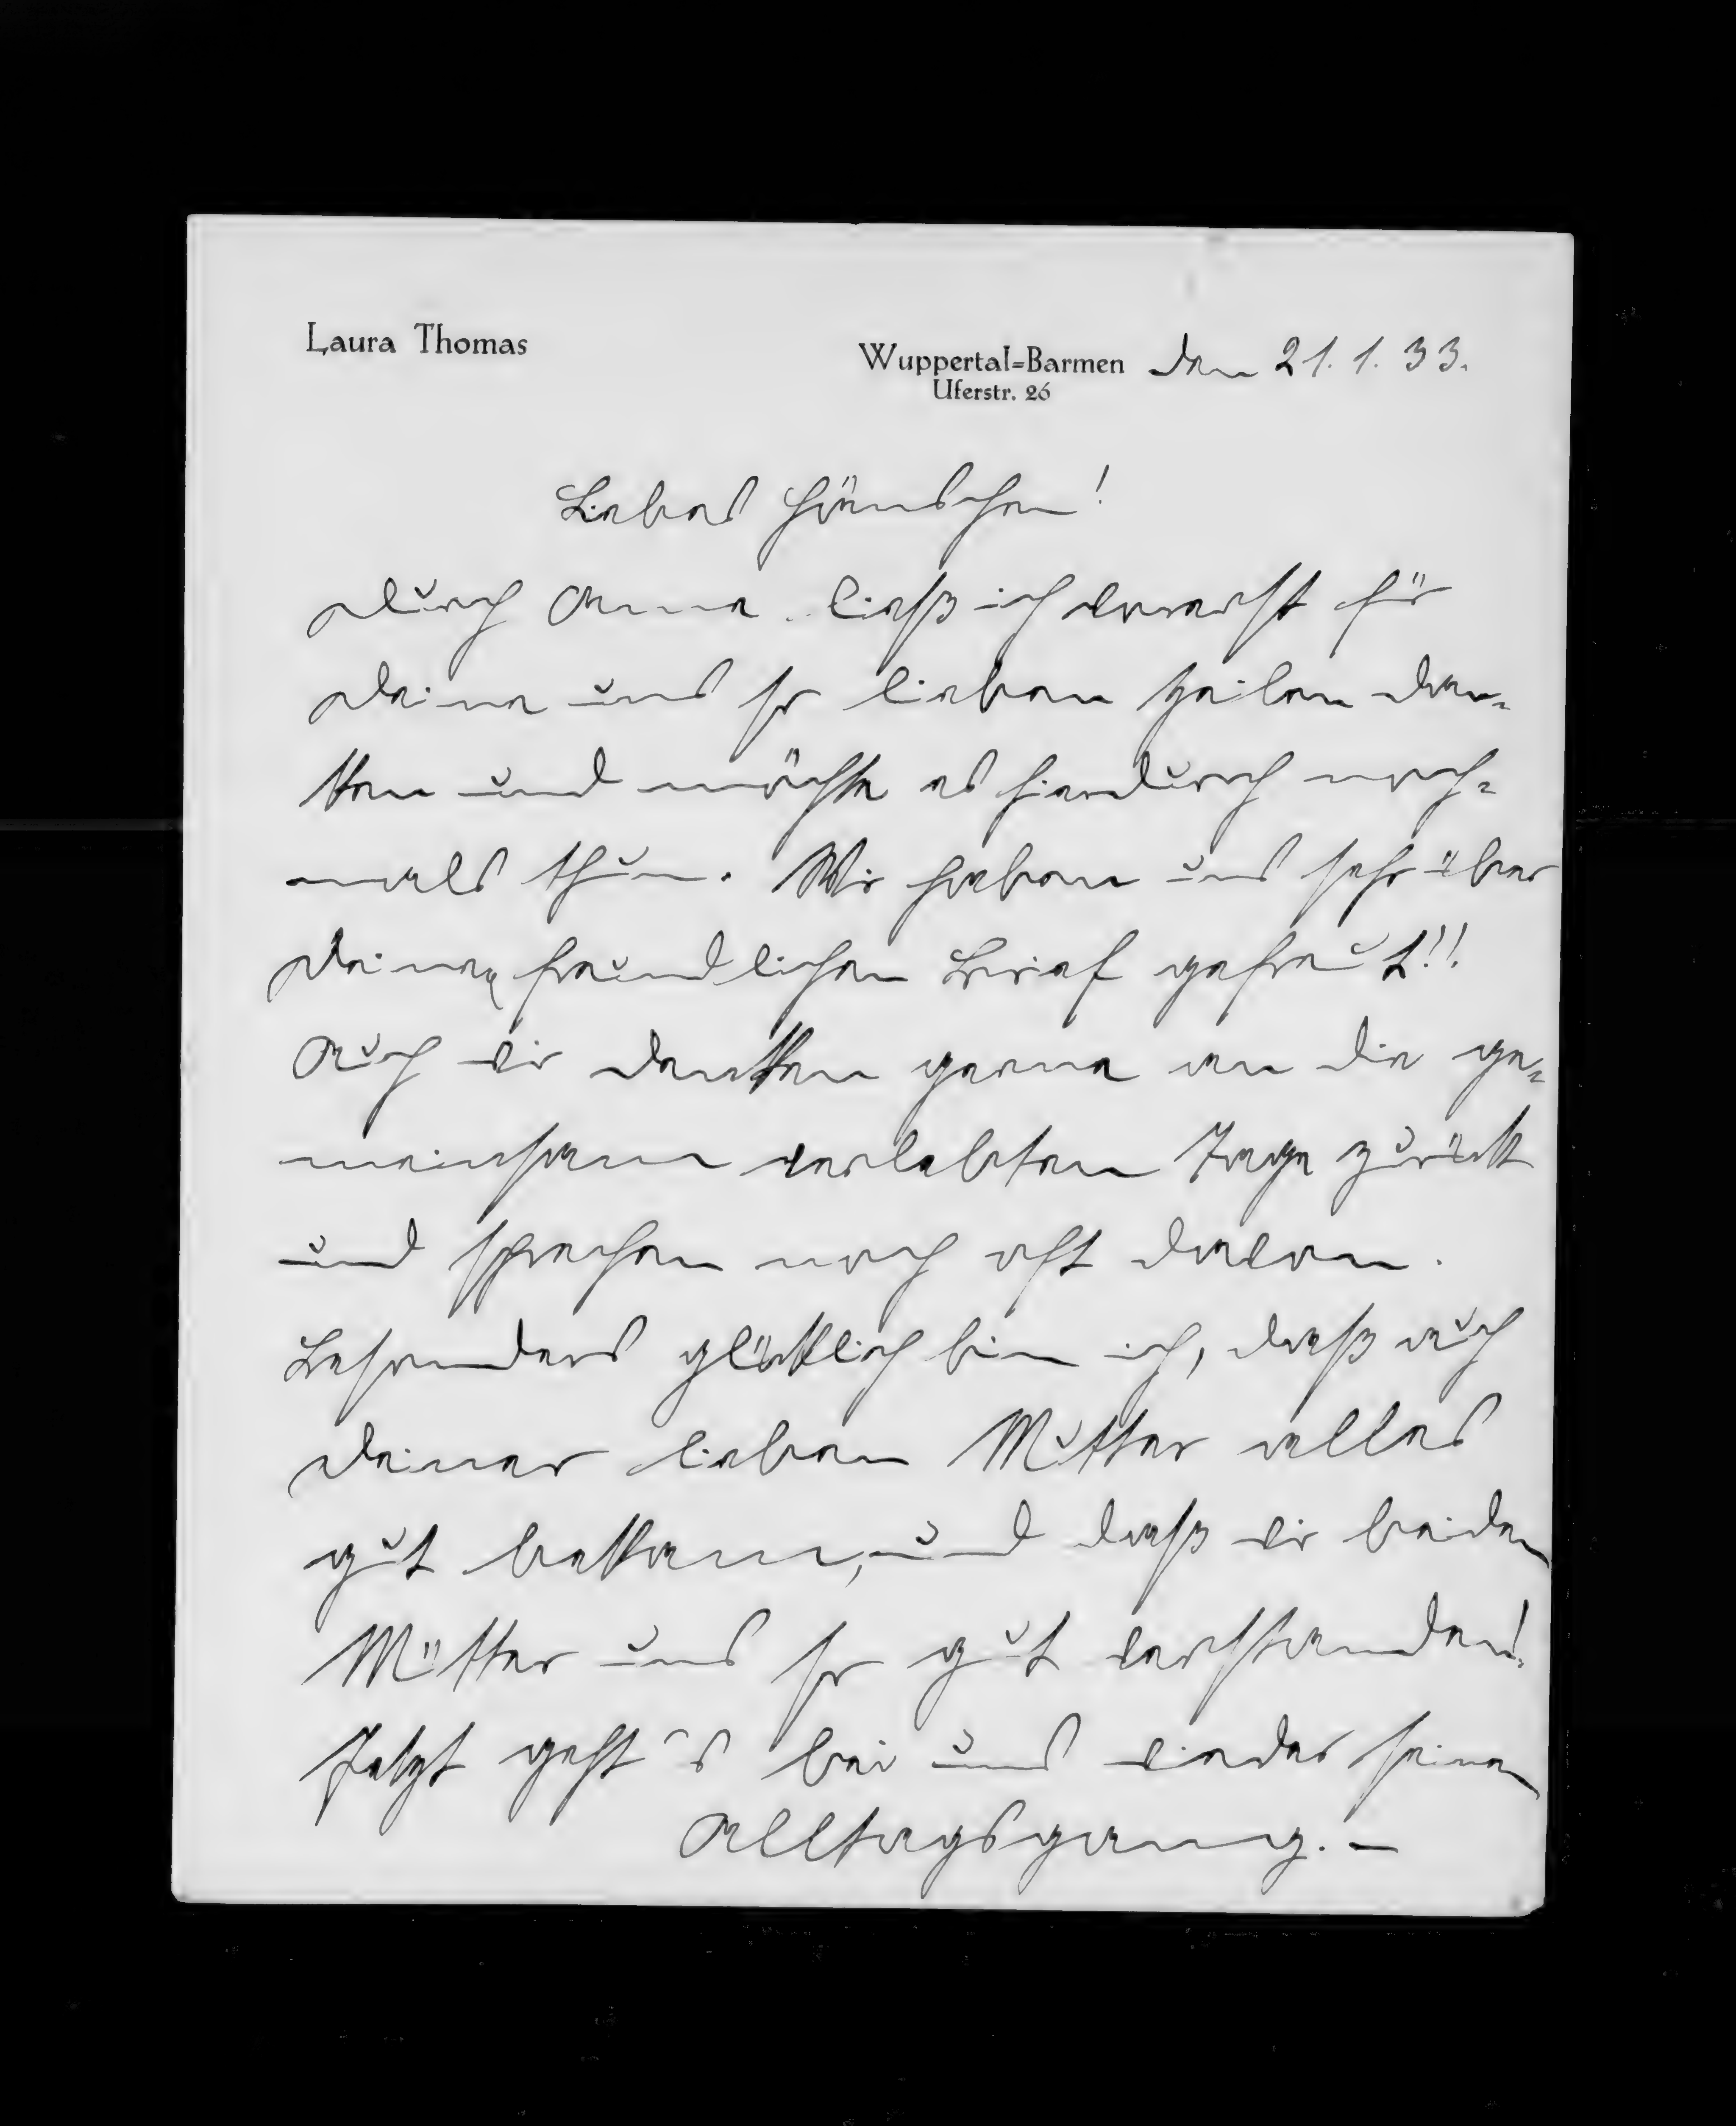 Laura Thomas
Wuppertal=Barmen den 21. 1. 33.
Uferstr. 26
Liebes Hänschen!
Durch Anna ließ ich vorerst für
Deine uns so lieben Zeilen dan-
ken und möchte es hierdurch noch-
mals thun. Wir haben uns sehr über
Deinen freundlichen Brief gefreut!!
Auch wir denken gerne an die ge-
meinsam verlebten Tage zurück
und sprechen noch oft davon.
Besonders glücklich bin ich, daß auch
Deiner lieben Mutter alles
gut bekam, und daß wir beiden
Mütter uns so gut verstanden!
Jetzt geht's bei uns wieder seinen
Alltagsgang. –